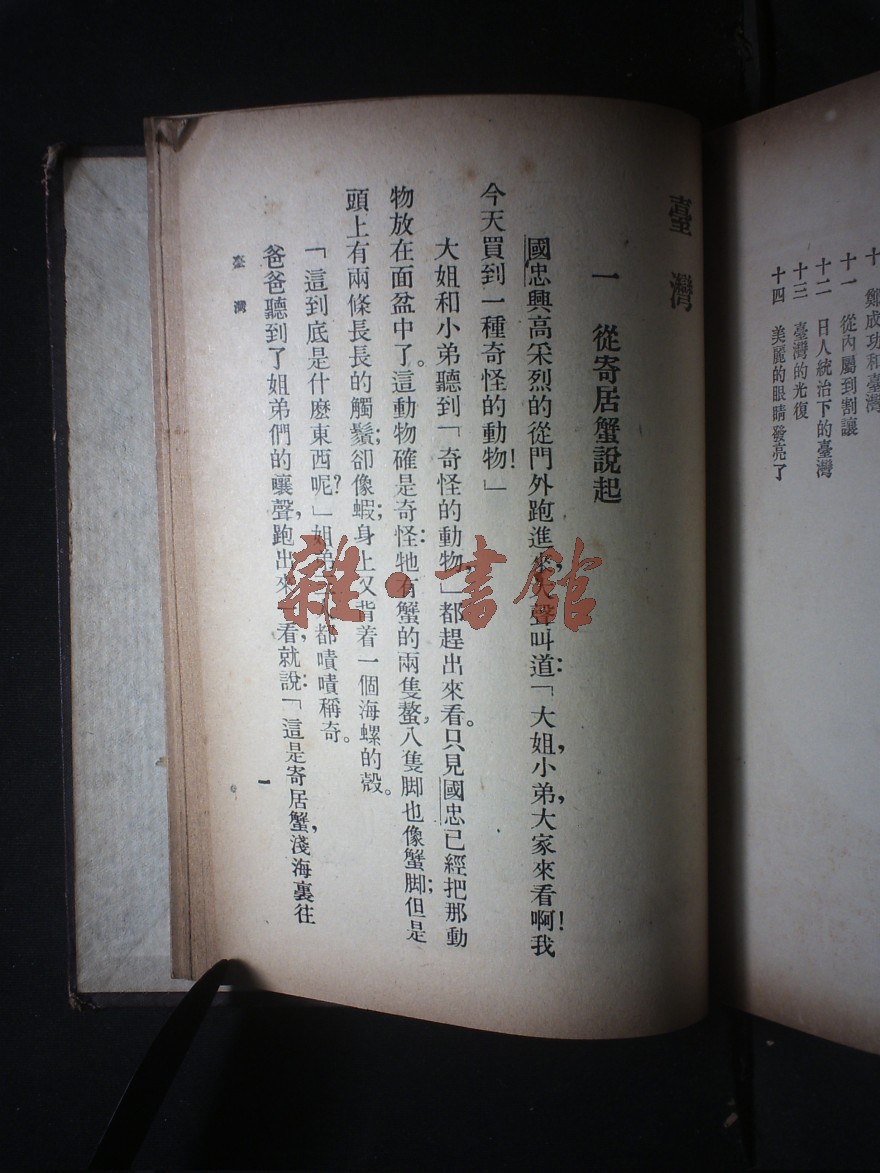 十 鄭成功和臺灣
十一 從內屬到割讓
十二 日人統治下的臺灣
十三 臺灣的光復
十四 美麗的眼睛發亮了
臺灣
一 從寄居蟹說起
國忠興高采烈的從門外跑進來，大聲叫道：「大姐，小弟，大家來看啊！我
今天買到一種奇怪的動物！」
大姐和小弟聽到「奇怪的動物，」都趕出來看。只見國忠已經把那動
物放在面盆中了。這動物確是奇怪：牠有蟹的兩隻螯，八隻脚也像蟹脚；但是
頭上有兩條長長的觸鬚；卻像蝦；身上又背着一個海螺的殼。
「這到底是什麽東西呢？」姐弟 人都嘖嘖稱奇。
爸爸聽到了姐弟們的嚷聲，跑出來一看，就說：「這是寄居蟹，淺海裏往
臺灣
一
雜·書館